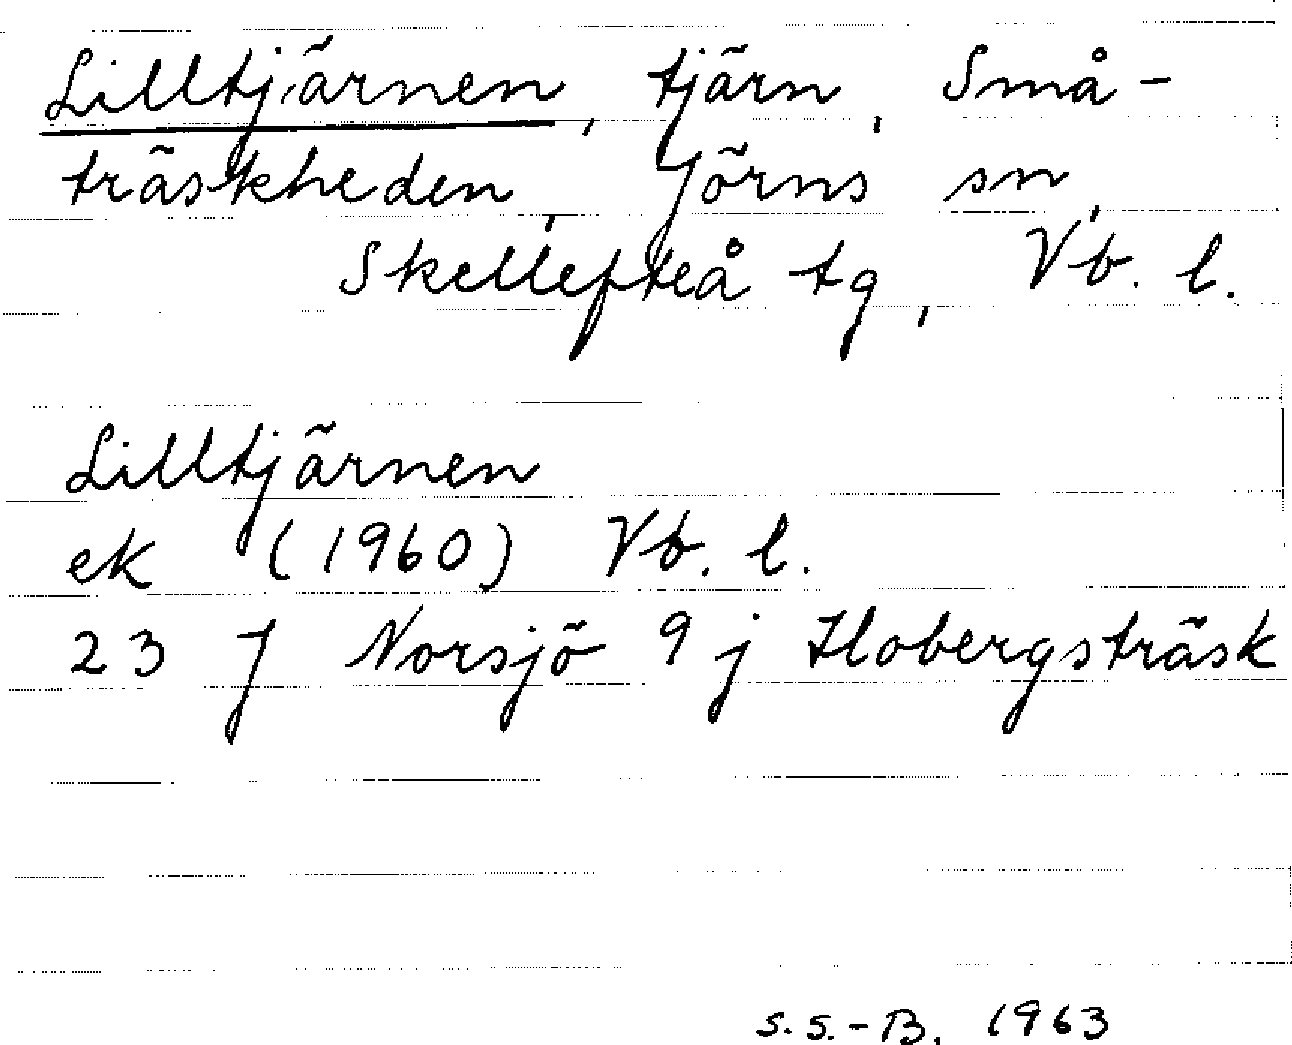 Lilltjärnen, tjärn, Små-
träskheden, Jörns sn,
Skellefteå tg, Vb. l.
Lilltjärnen
ek (1960) Vb. l.
23 J Norsjö 9 j Hobergsträsk
S. S.-B. 1963